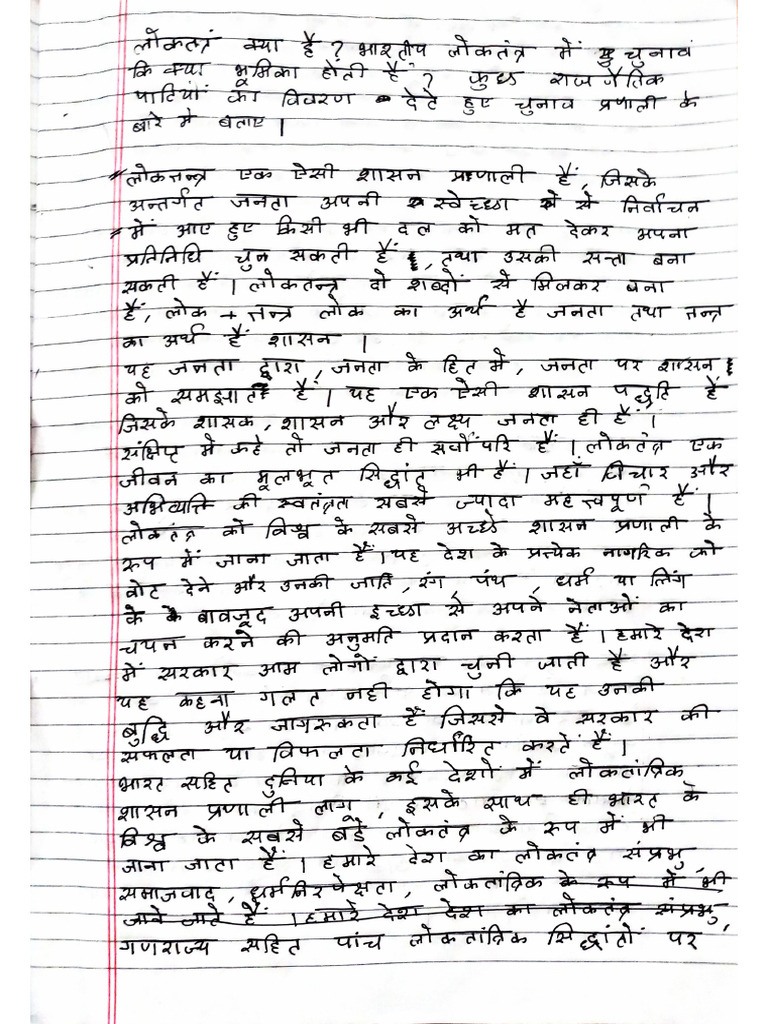 लोकतंत्र क्या है? भारतीय लोकतंत्र में चुनाव
कि क्या भूमिका होती है? कुछ राजनैतिक
पार्टियों का विवरण देते हुए चुनाव प्रणाली के
बारे मे बताए।
लोकतन्त्र एक ऐसी शासन प्रणाली हैं, जिसके
अन्तर्गत जनता अपनी स्वेच्छा से निर्वाचन
में आए हुए किसी भी दल को मत देकर अपना
प्रतितिधि चुन सकती हैं, तथा उसकी सत्ता बना
सकती हैं। लोकतन्त्र दो शब्दों से मिलकर बना
हैं, लोक + तन्त्र लोक का अर्थ है जनता तथा तन्त्र
का अर्थ हैं शासन।
यह जनता द्वारा, जनता के हित में, जनता पर शासन
को समझाता हैं। यह एक ऐसी शासन पद्धति हैं
जिसके शासक, शासन और लक्ष्य जनता ही हैं।
संक्षिप्ट में कहे तो जनता ही सर्वोंपरि हैं। लोकतंत्र एक
जीवन का मूलभूत सिद्धांत भी हैं। जहाँ विचार और
अभिव्यक्ति की स्वतंत्रता सबसे ज्यादा महत्त्वपूर्ण हैं।
लोकतंत्र को विश्व के सबसे अच्छे शासन प्रणाली के
रुप में जाना जाता हैं। यह देश के प्रत्येक नागरिक को
वोट देने और उनकी जाति, रंग, पंथ, धर्म या लिंग
के बावजूद अपनी इच्छा से अपने नेताओं का
चयन करने की अनुमति प्रदान करता हैं। हमारे देश
में सरकार आम लोगों द्वारा चुनी जाती है और
यह कहना गलत नही होगा कि यह उनकी
बुद्धि और जागरुकता हैं जिससे वे सरकार की
सफलता या विफलता निर्धारित करतें हैं।
भारत सहित दुनिया के कई देशों में लोकतांत्रिक
शासन प्रणाली लागू, इसके साथ ही भारत के
विश्व के सबसे बडे लोकतंत्र के रुप में भी
जाना जाता हैं। हमारे देश का लोकतंत्र संप्रभु,
समाजवाद, धर्मनिरपेक्षता, लोकतांत्रिक के रूप में भी
जाने जाते हैं। हमारे देश देश का लोकतंत्र संप्रभु,
गणराज्य सहित पांच लोकतांत्रिक सिद्धांतों पर